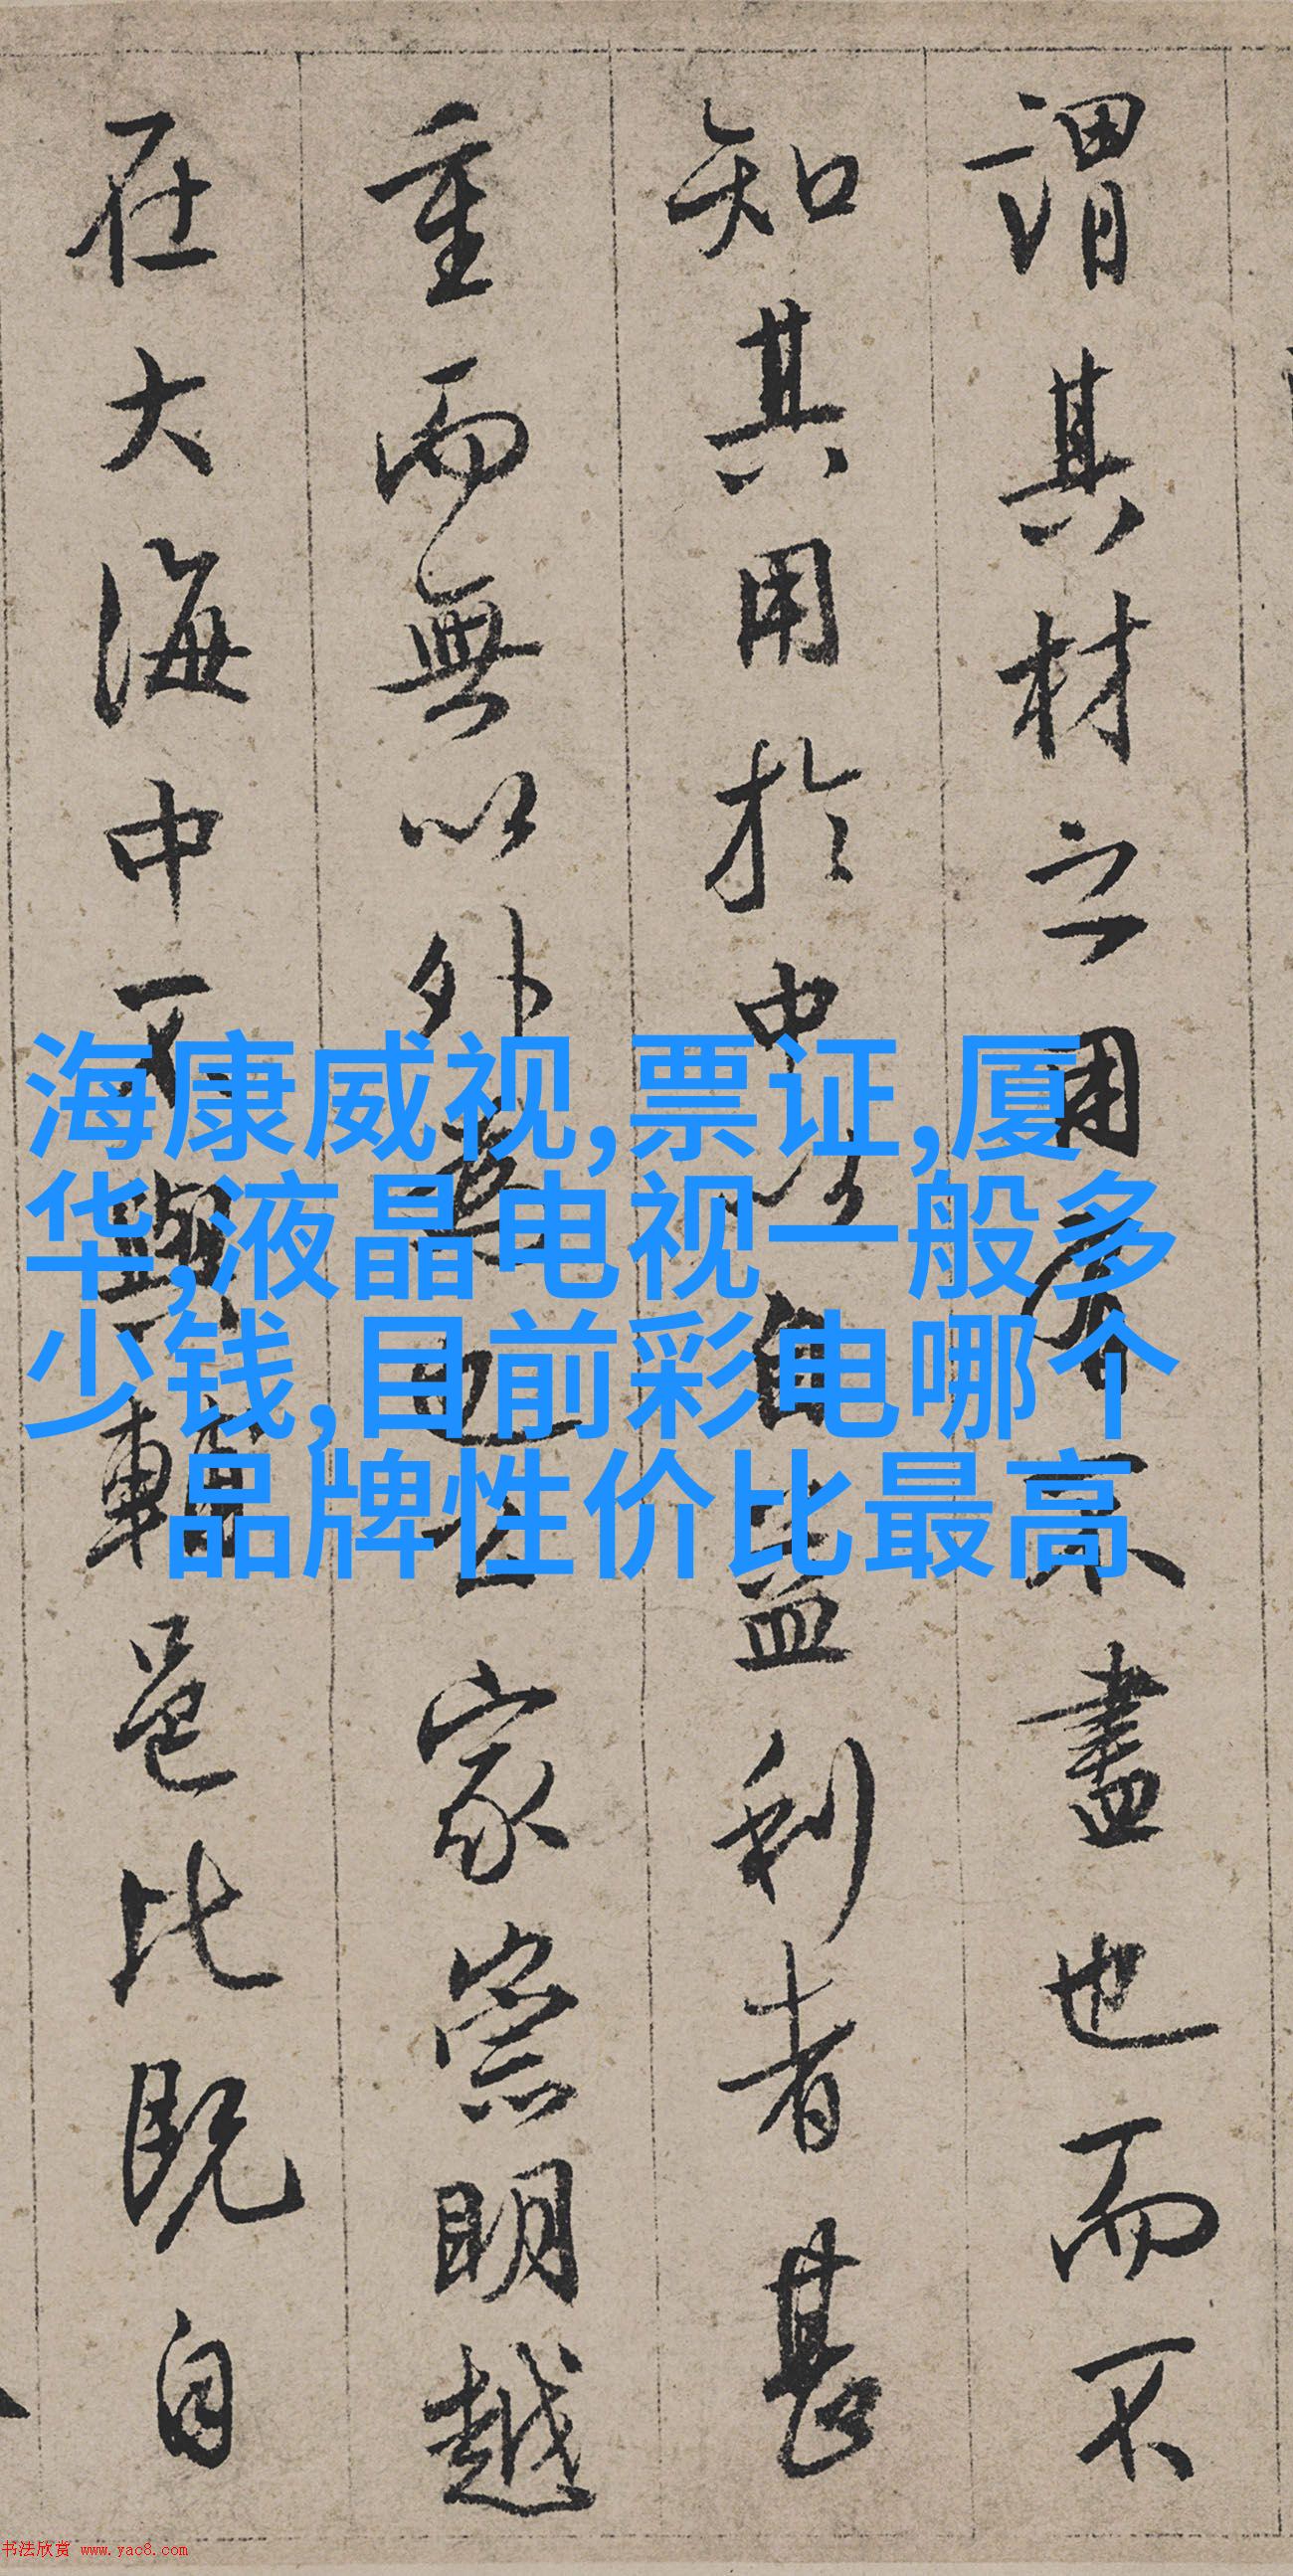 謂其材之用有不盡也而不
知其用於中以自益利者甚
重而無以外慕也公家崇明越
在大海中不與赣邑比既自
海康威视,票证,厦
华,液晶电视一般多
少钱,目前彩电哪个
品牌性价比最高
书法欣赏 www.yac8.com